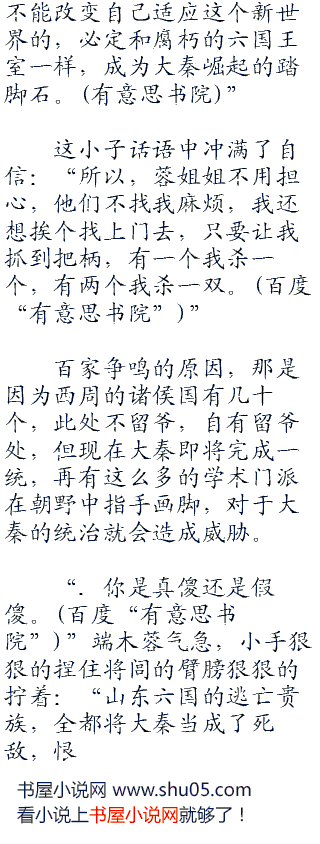 不能改变自己适应这个新世
界的，必定和腐朽的六国王
室一样，成为大秦崛起的踏
脚石。(有意思书院)”
这小子话语中冲满了自
信：“所以，蓉姐姐不用担
心，他们不找我麻烦，我还
想挨个找上门去，只要让我
抓到把柄，有一个我杀一
个，有两个我杀一双。(百度
“有意思书院”)”
百家争鸣的原因，那是
因为西周的诸侯国有几十
个，此处不留爷，自有留爷
处，但现在大秦即将完成一
统，再有这么多的学术门派
在朝野中指手画脚，对于大
秦的统治就会造成威胁。
“．你是真傻还是假
傻。(百度“有意思书
院”)”端木蓉气急，小手狠
狠的捏住将闾的臂膀狠狠的
拧着：“山东六国的逃亡贵
族，全都将大秦当成了死
敌，恨
书屋小说网 www.shu05.com
看小说上书屋小说网就够了！